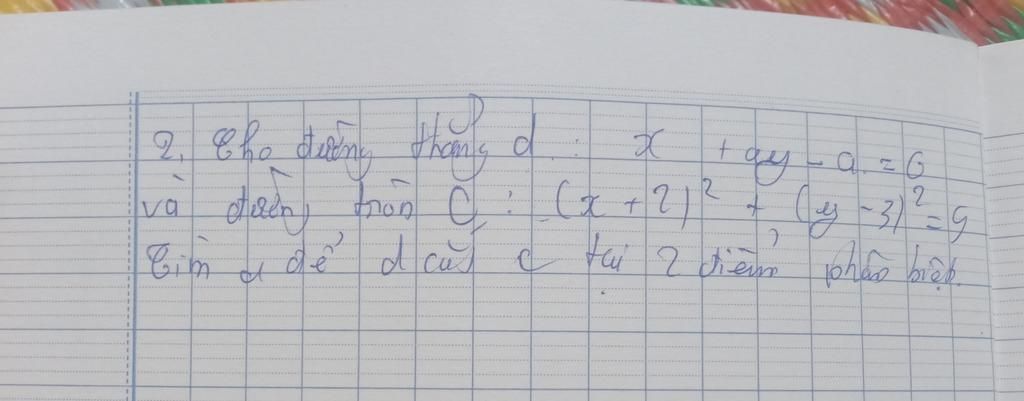 2. Cho đường thẳng d : x + ay - a = 0
và đường tròn C : (x + 2)² + (y - 3)² = 9
Tìm a để d cắt C tại 2 điểm phân biệt.